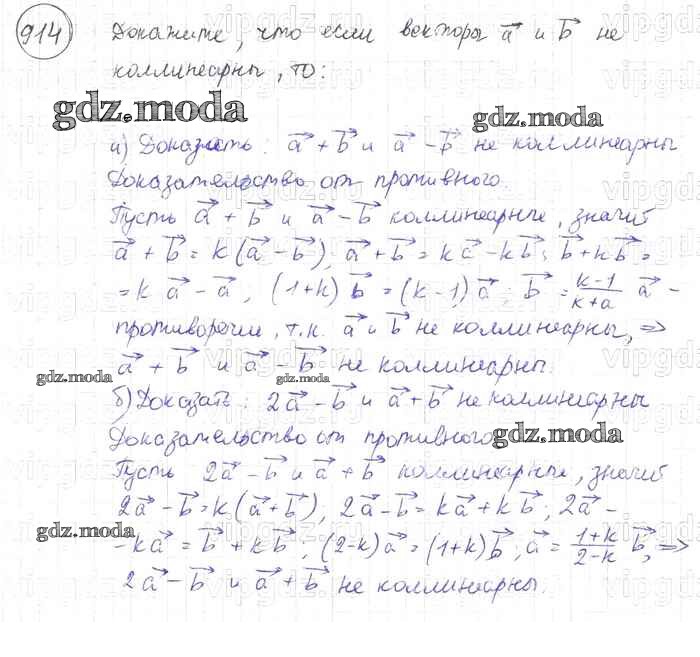 914 Докажите, что если векторы a⃗ и b⃗ не
коллинеарны, то:
gdz.moda
gdz.moda
а) Доказать: a⃗ + b⃗ и a⃗ - b⃗ не коллинеарны
Доказательство от противного.
Пусть a⃗ + b⃗ и a⃗ - b⃗ коллинеарные, значит
a⃗ + b⃗ = k(a⃗ - b⃗), a⃗ + b⃗ = ka⃗ - kb⃗; b⃗ + kb⃗ =
= ka⃗ - a⃗, (1+k) b⃗ = (k-1) a⃗; b⃗ = (k-1)/(k+a) a⃗ -
противоречии, т.к. a⃗ и b⃗ не коллинеарны, =>
a⃗ + b⃗ и a⃗ - b⃗ не коллинеарны.
gdz.moda
gdz.moda
б) Доказать: 2a⃗ - b⃗ и a⃗ + b⃗ не коллинеарны
Доказательство от противного
gdz.moda
Пусть 2a⃗ - b⃗ и a⃗ + b⃗ коллинеарные, значит
2a⃗ - b⃗ = k(a⃗ + b⃗); 2a⃗ - b⃗ = ka⃗ + kb⃗; 2a⃗ -
gdz.moda
- ka⃗ = b⃗ + kb⃗; (2-k)a⃗ = (1+k)b⃗; a⃗ = (1+k)/(2-k) b⃗, =>
2a⃗ - b⃗ и a⃗ + b⃗ не коллинеарны.